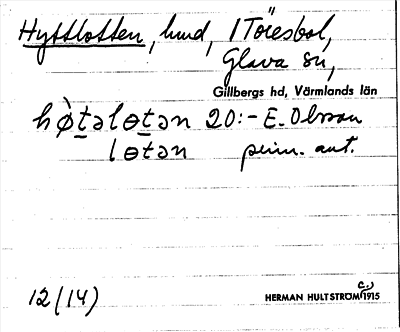 Hyttlotten, hmd, 1 Töresbol,
Glava sn,
Gillbergs hd, Värmlands län
hø̀təlɵtən 20:- E. Olsson
lɵtən prim. ant.
12(14)
HERMAN HULTSTRÖM 1915